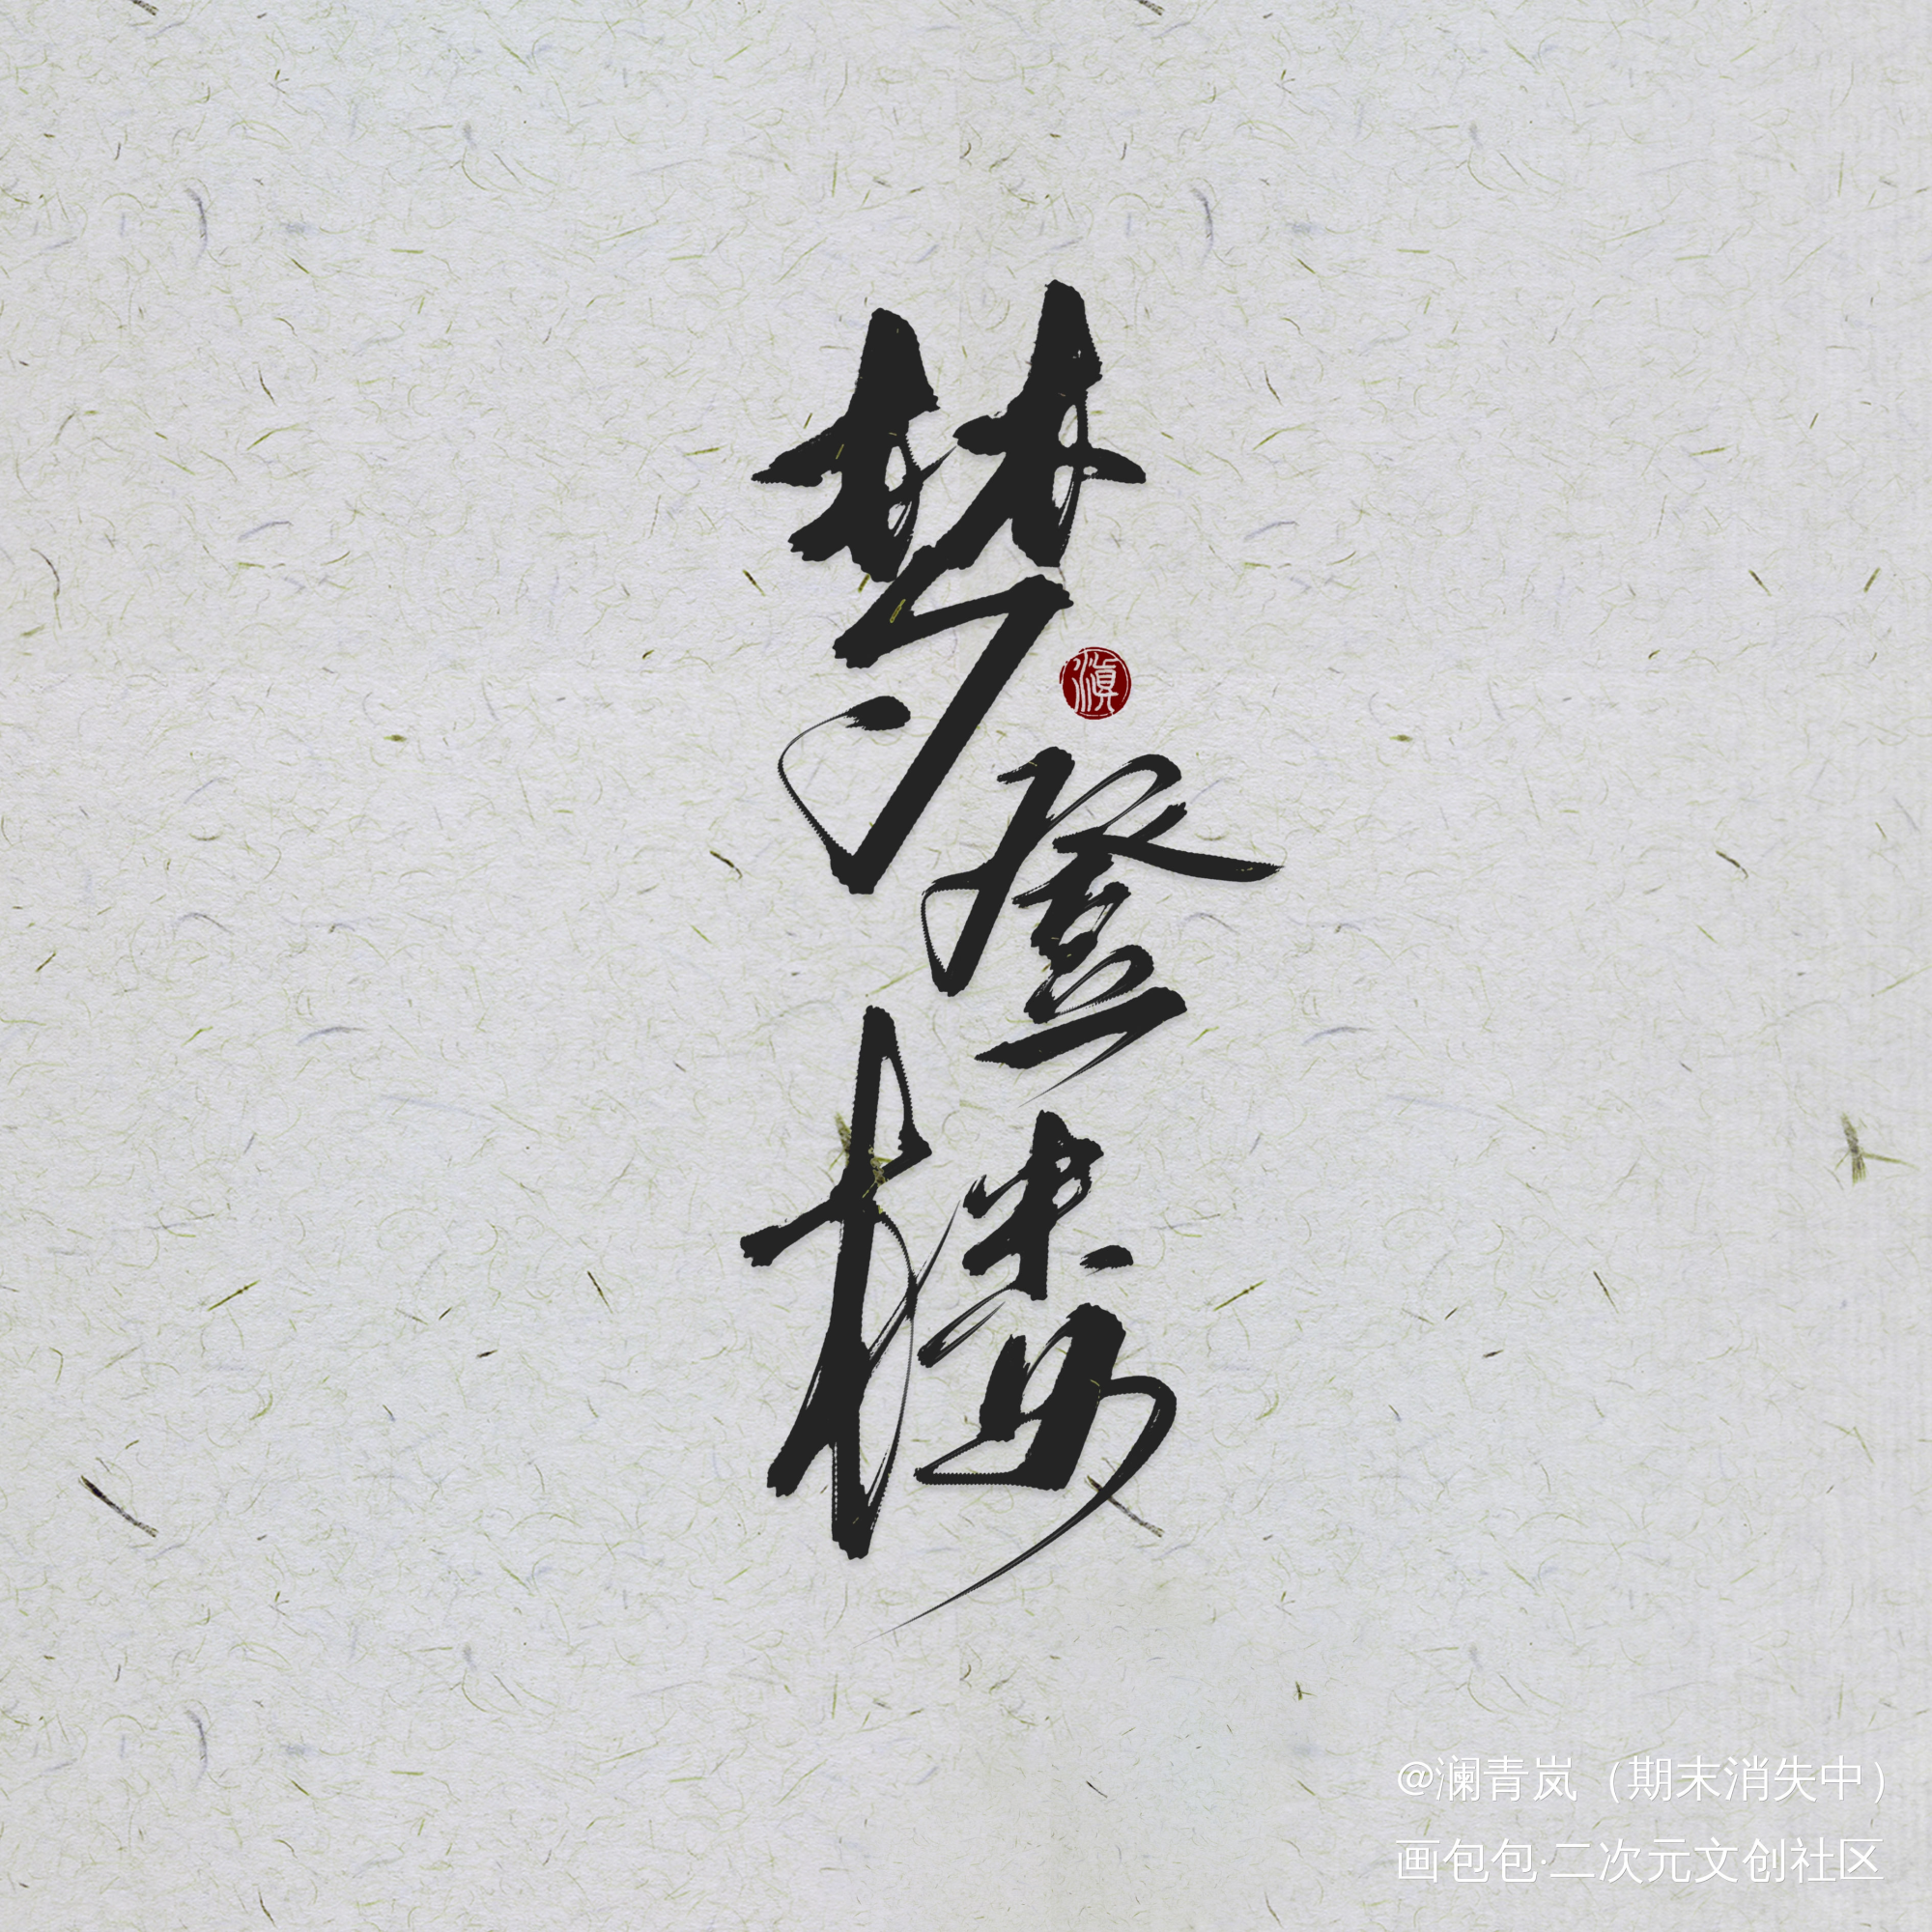 梦登楼
滇
@澜青岚（期末消失中）
画包包·二次元文创社区